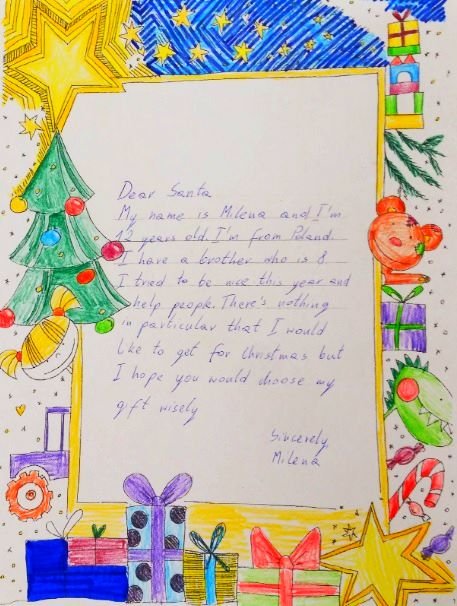 Dear Santa
My name is Milena and I'm
12 years old. I'm from Poland.
I have a brother who is 8
I tried to be nice this year and
help people. There's nothing
in particular that I would
like to get for Christmas but
I hope you would choose my
gift wisely
Sincerely,
Milena